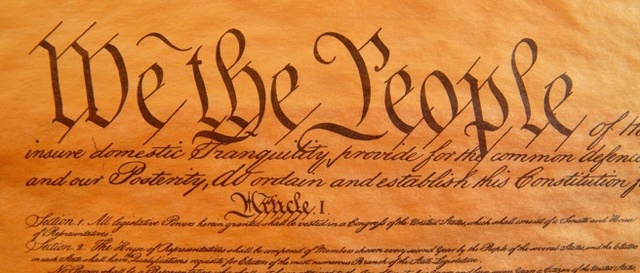 We the People of th
insure domestic Tranquility, provide for the common defenc
and our Posterity, do ordain and establish this Constitution f
Article. I
Section. 1. All legislative Powers herein granted shall be vested in a Congress of the United States, which shall consist of a Senate and House
of Representatives.
Section. 2. The House of Representatives shall be composed of Members chosen every second Year by the People of the several States, and the Electors
in each State shall have Qualifications requisite for Electors of the most numerous Branch of the State Legislature.
No Person shall be a Representative who shall